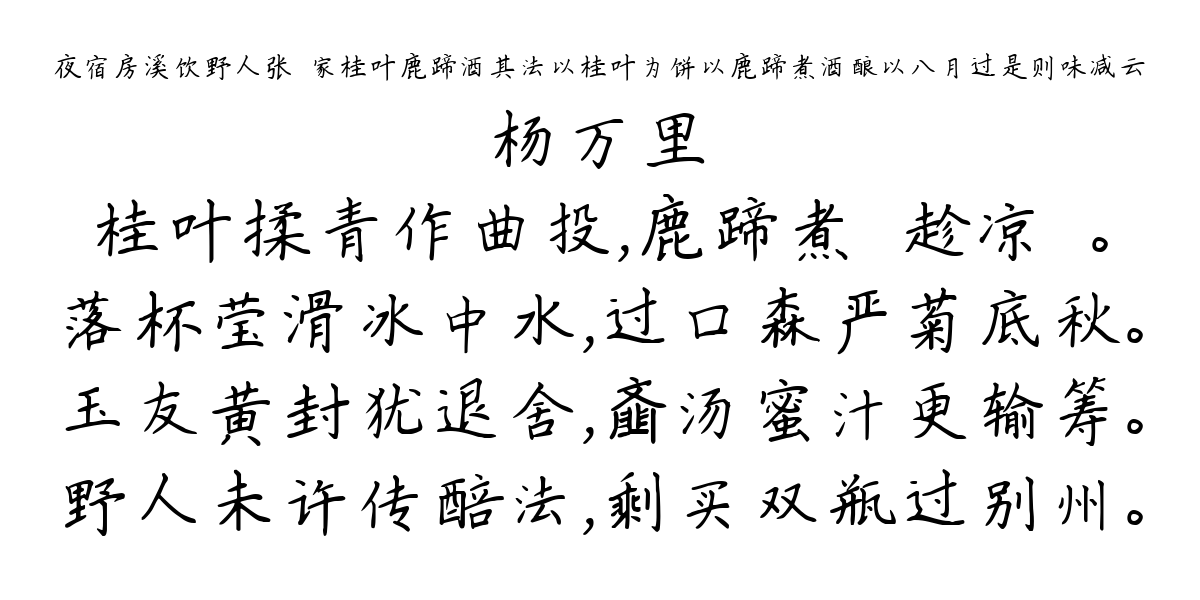 夜宿房溪饮野人张 家桂叶鹿蹄酒其法以桂叶为饼以鹿蹄煮酒酿以八月过是则味减云
杨万里
桂叶揉青作曲投,鹿蹄煮 趁凉 。
落杯莹滑冰中水,过口森严菊底秋。
玉友黄封犹退舍,齑汤蜜汁更输筹。
野人未许传醅法,剩买双瓶过别州。